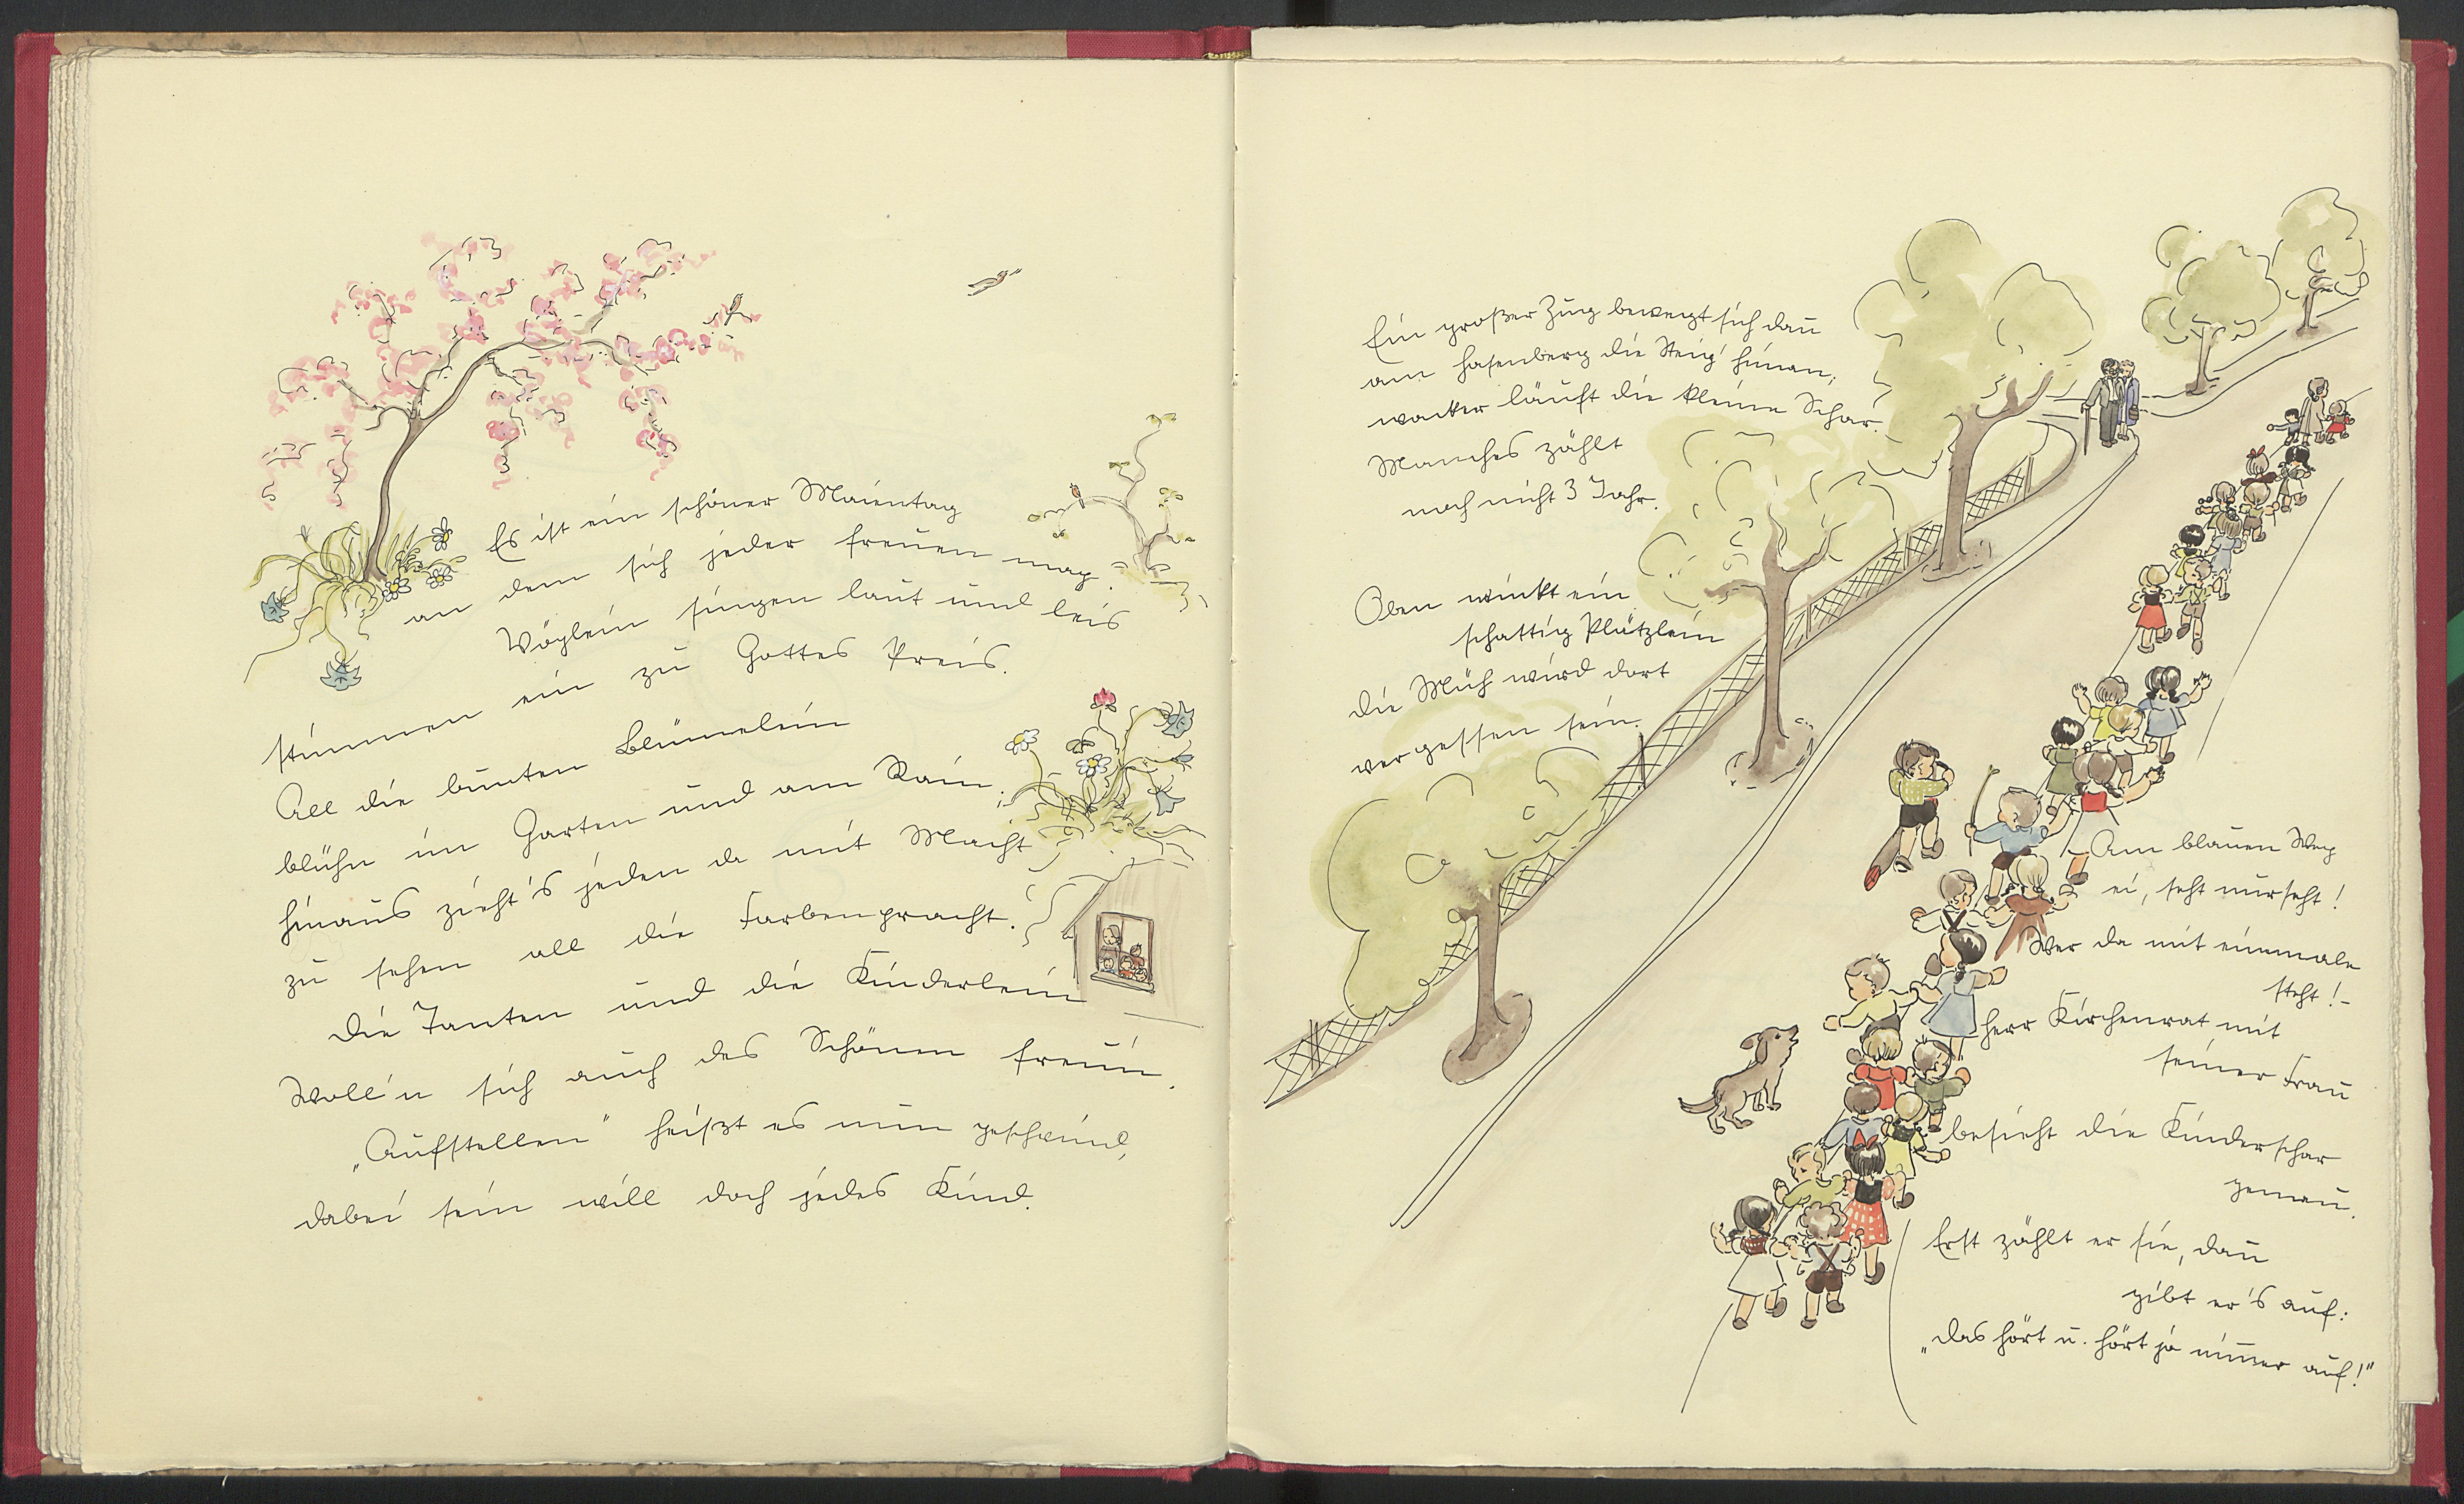 Es ist ein schöner Maientag
an dem sich jeder freuen mag.
Vöglein singen laut und leis
stimmen ein zu Gottes Preis.
All die bunten Blümelein
blühn im Garten und am Rain;
hinaus zieht's jeden da mit Macht
zu sehen all die Farbenpracht.
Die Tanten und die Kinderlein
woll'n sich auch des Schönen freun.
"Aufstellen" heißt es nun geschwind,
dabei sein will doch jedes Kind.
Ein großer Zug bewegt sich dan̄
am Hasenberg die Steig' hinan;
wacker läuft die kleine Schar.
Manches zählt
noch nicht 3 Jahr.
Oben winkt ein
schattig Plätzlein
die Müh wird dort
vergessen sein.
Am blauen Weg
ei, seht nur seht!
Wer da mit einmale
steht! -
Herr Kirchenrat mit
seiner Frau
besieht die Kinderschar
genau.
Erst zählt er sie, dan̄
gibt er's auf:
"das hört u. hört ja nim̄er auf!"